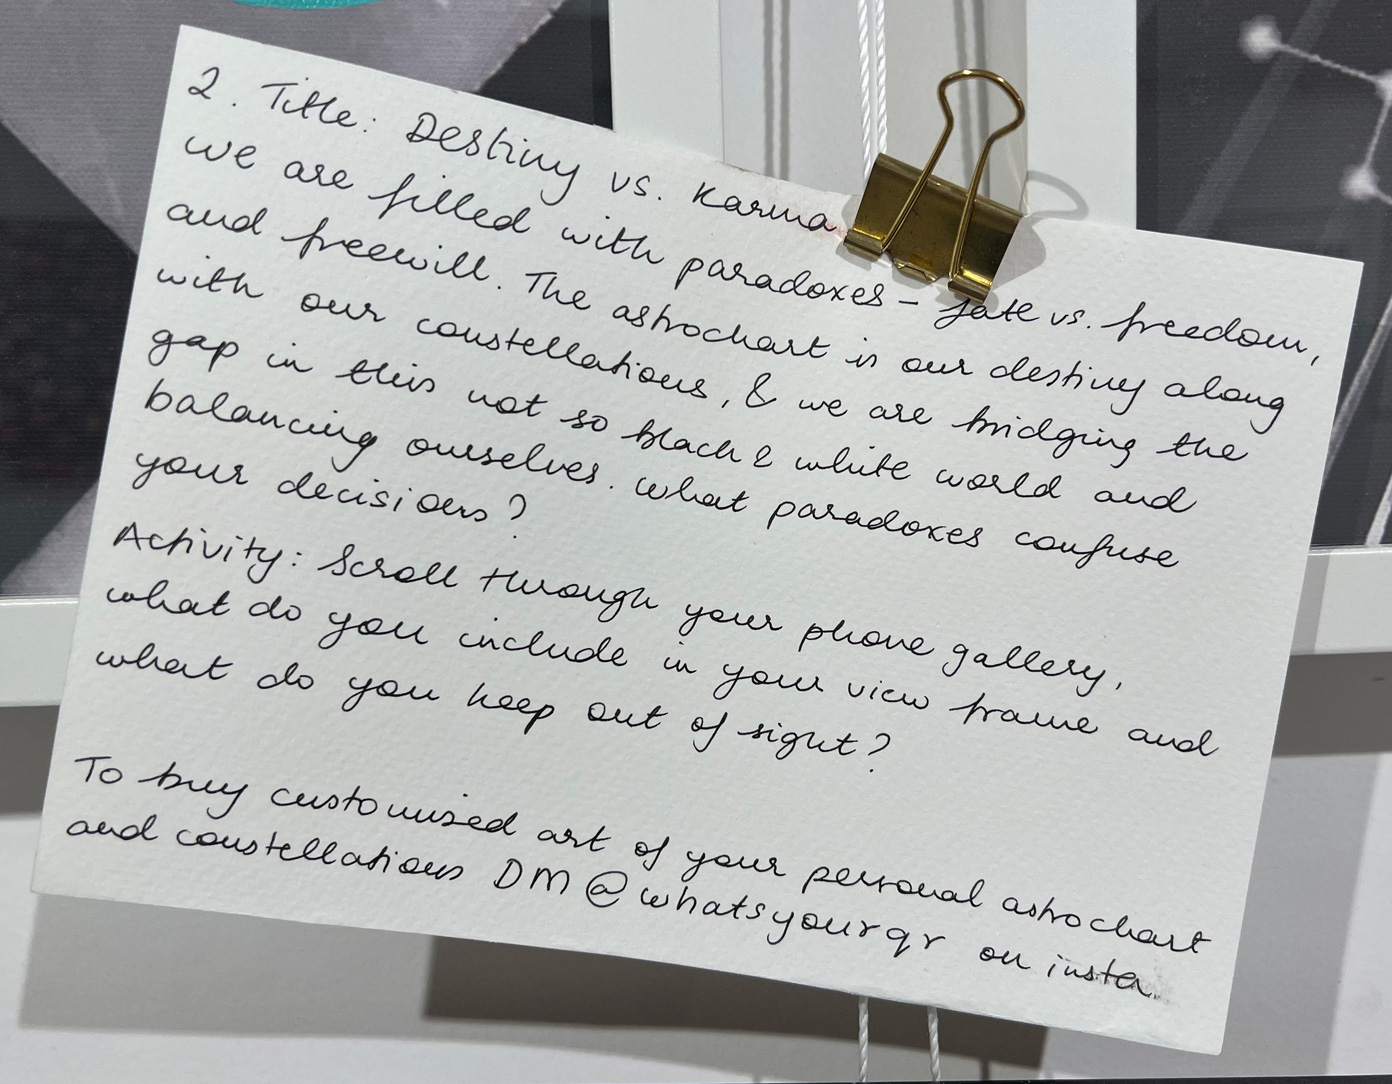 2. Title: Destiny vs. Karma
we are filled with paradoxes - fate vs. freedom,
and freewill. The astrochart is our destiny along
with our constellations, & we are bridging the
gap in this not so black & white world and
balancing ourselves. What paradoxes confuse
your decisions?
Activity: Scroll through your phone gallery,
what do you include in your view frame and
what do you keep out of sight?
To buy customised art of your personal astrochart
and constellations DM @whatsyourqr on insta